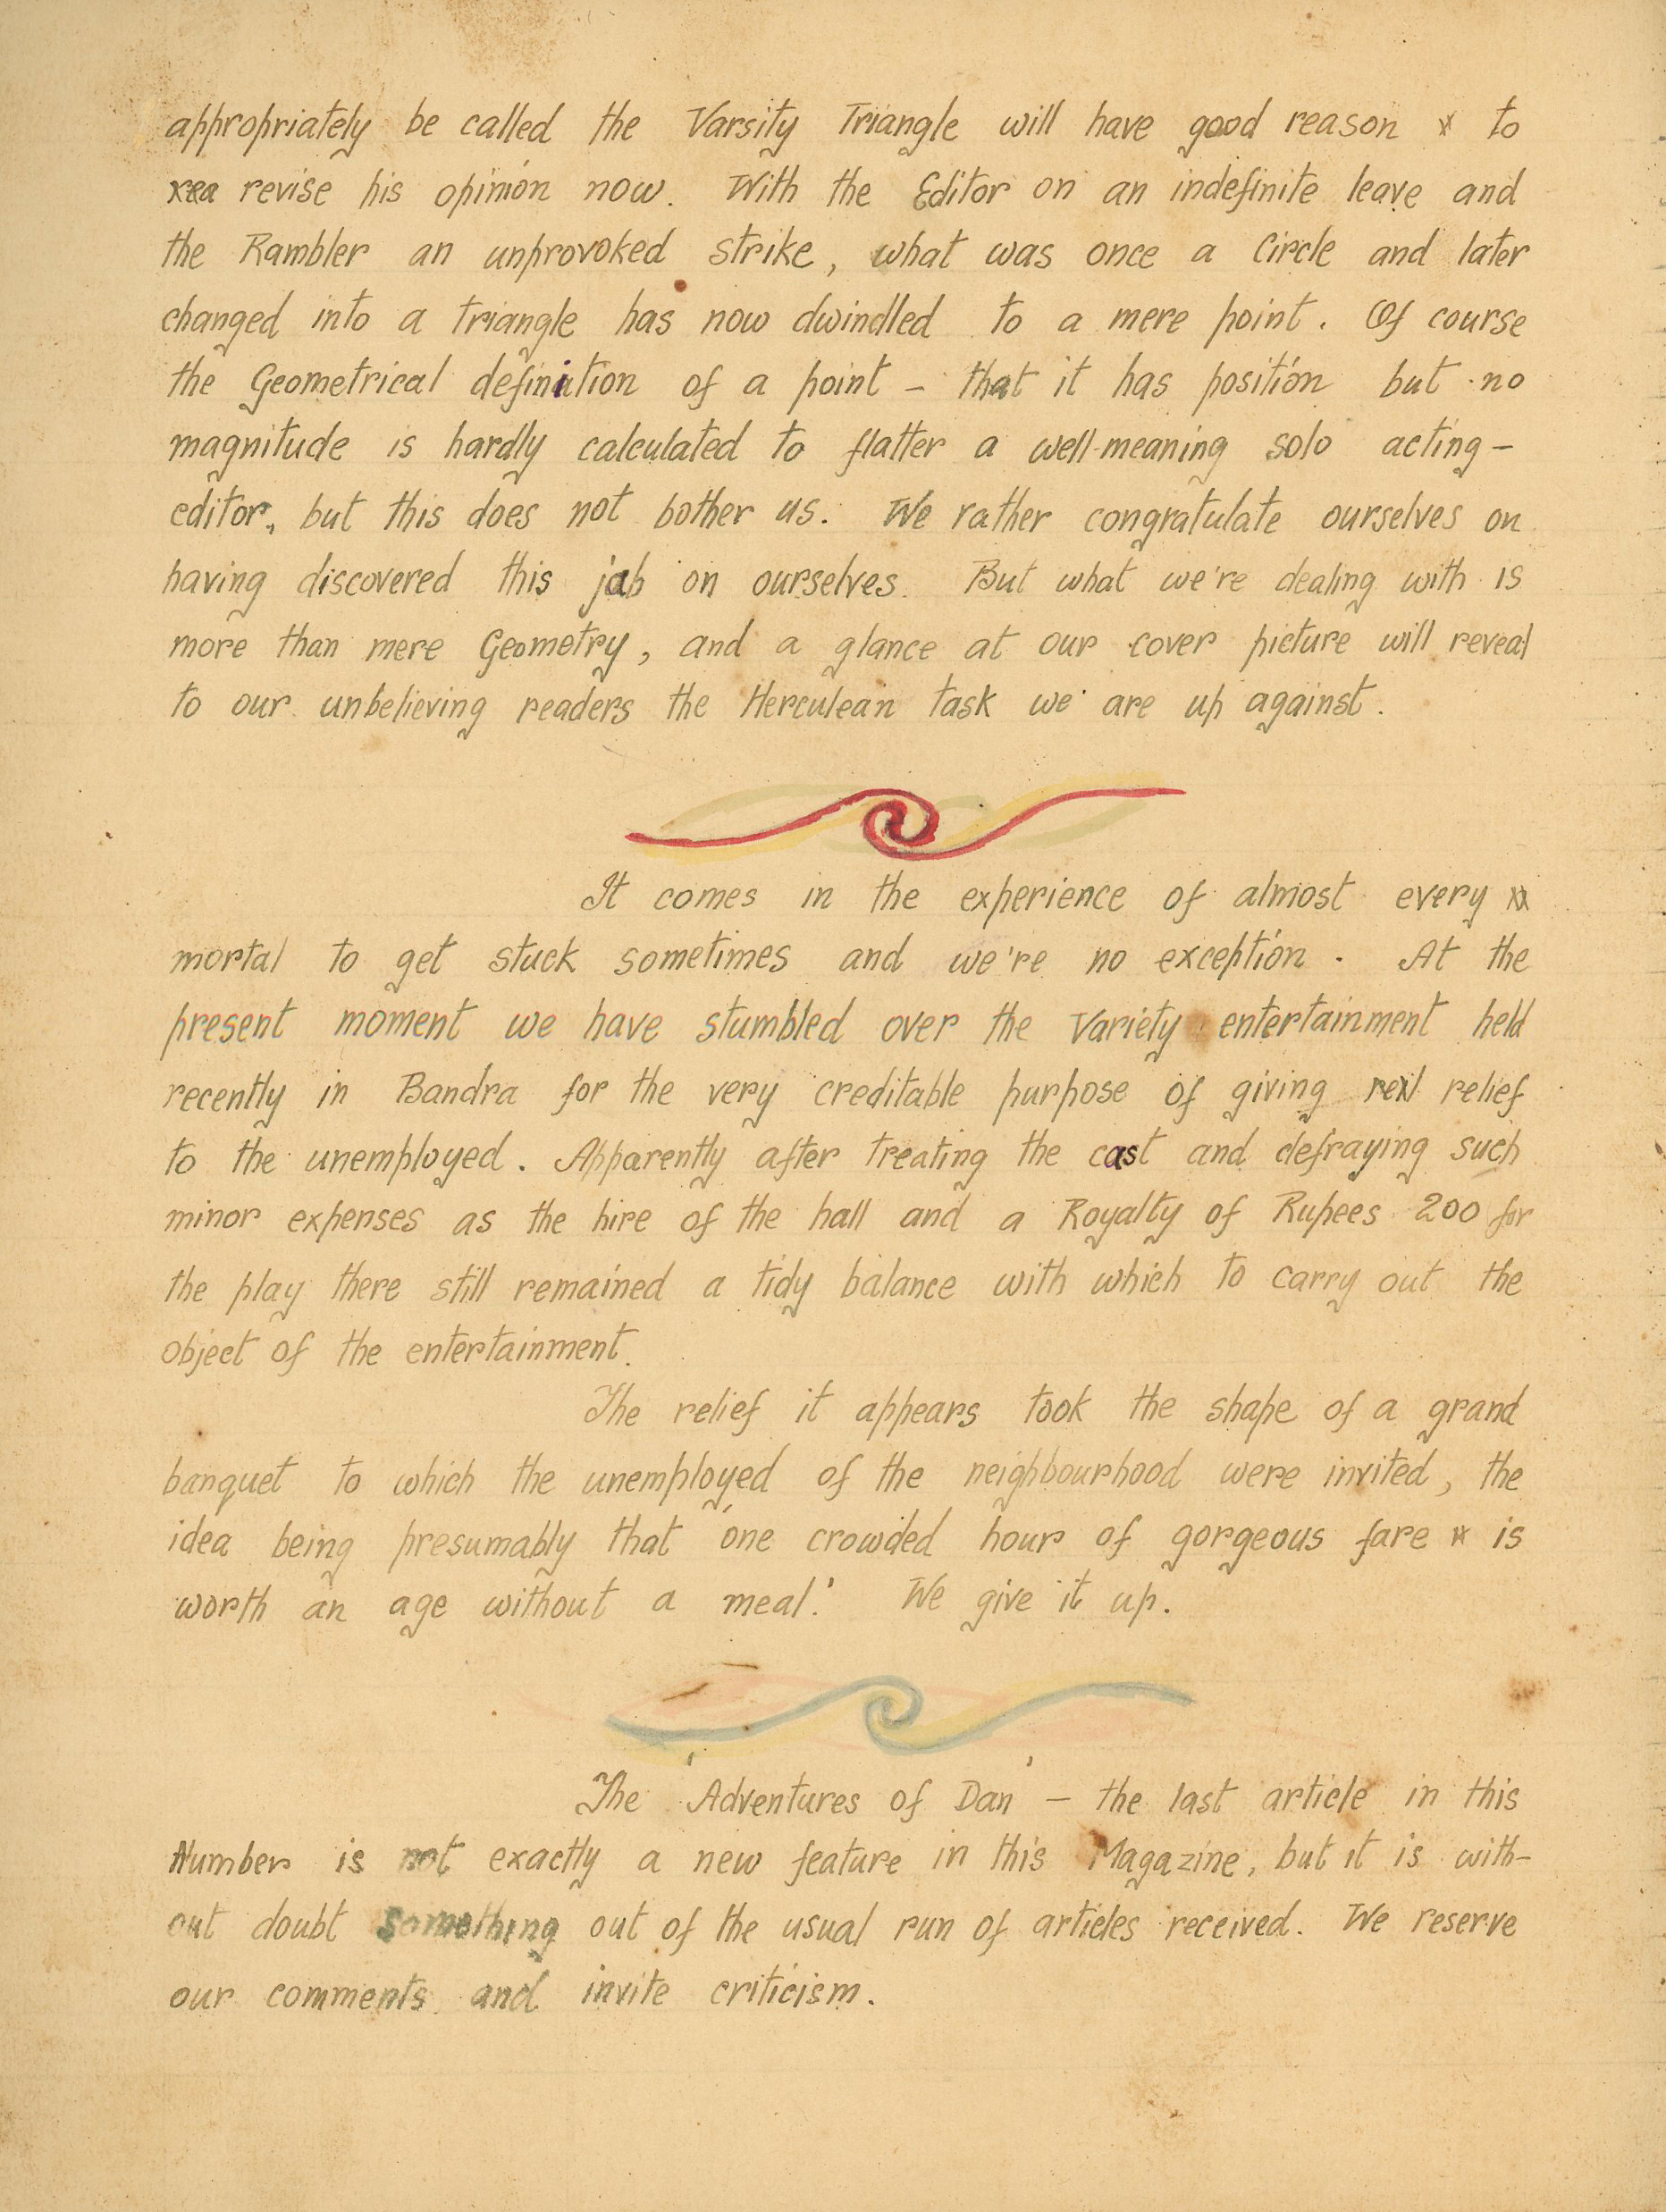 appropriately be called the Varsity Triangle will have good reason to
revise his opinion now. With the Editor on an indefinite leave and
the Rambler an unprovoked strike, what was once a Circle and later
changed into a triangle has now dwindled to a mere point. Of course
the Geometrical definition of a point – that it has position but no
magnitude is hardly calculated to flatter a well-meaning solo acting-
editor, but this does not bother us. We rather congratulate ourselves on
having discovered this jab on ourselves. But what we're dealing with is
more than mere Geometry, and a glance at our cover picture will reveal
to our unbelieving readers the Herculean task we are up against.
It comes in the experience of almost every
mortal to get stuck sometimes and we're no exception. At the
present moment we have stumbled over the Variety entertainment held
recently in Bandra for the very creditable purpose of giving relief
to the unemployed. Apparently after treating the cast and defraying such
minor expenses as the hire of the hall and a Royalty of Rupees 200 for
the play there still remained a tidy balance with which to carry out the
object of the entertainment.
The relief it appears took the shape of a grand
banquet to which the unemployed of the neighbourhood were invited, the
idea being presumably that 'one crowded hour of gorgeous fare is
worth an age without a meal.' We give it up.
The 'Adventures of Dan' – the last article in this
Number is not exactly a new feature in this Magazine, but it is with-
out doubt something out of the usual run of articles received. We reserve
our comments and invite criticism.